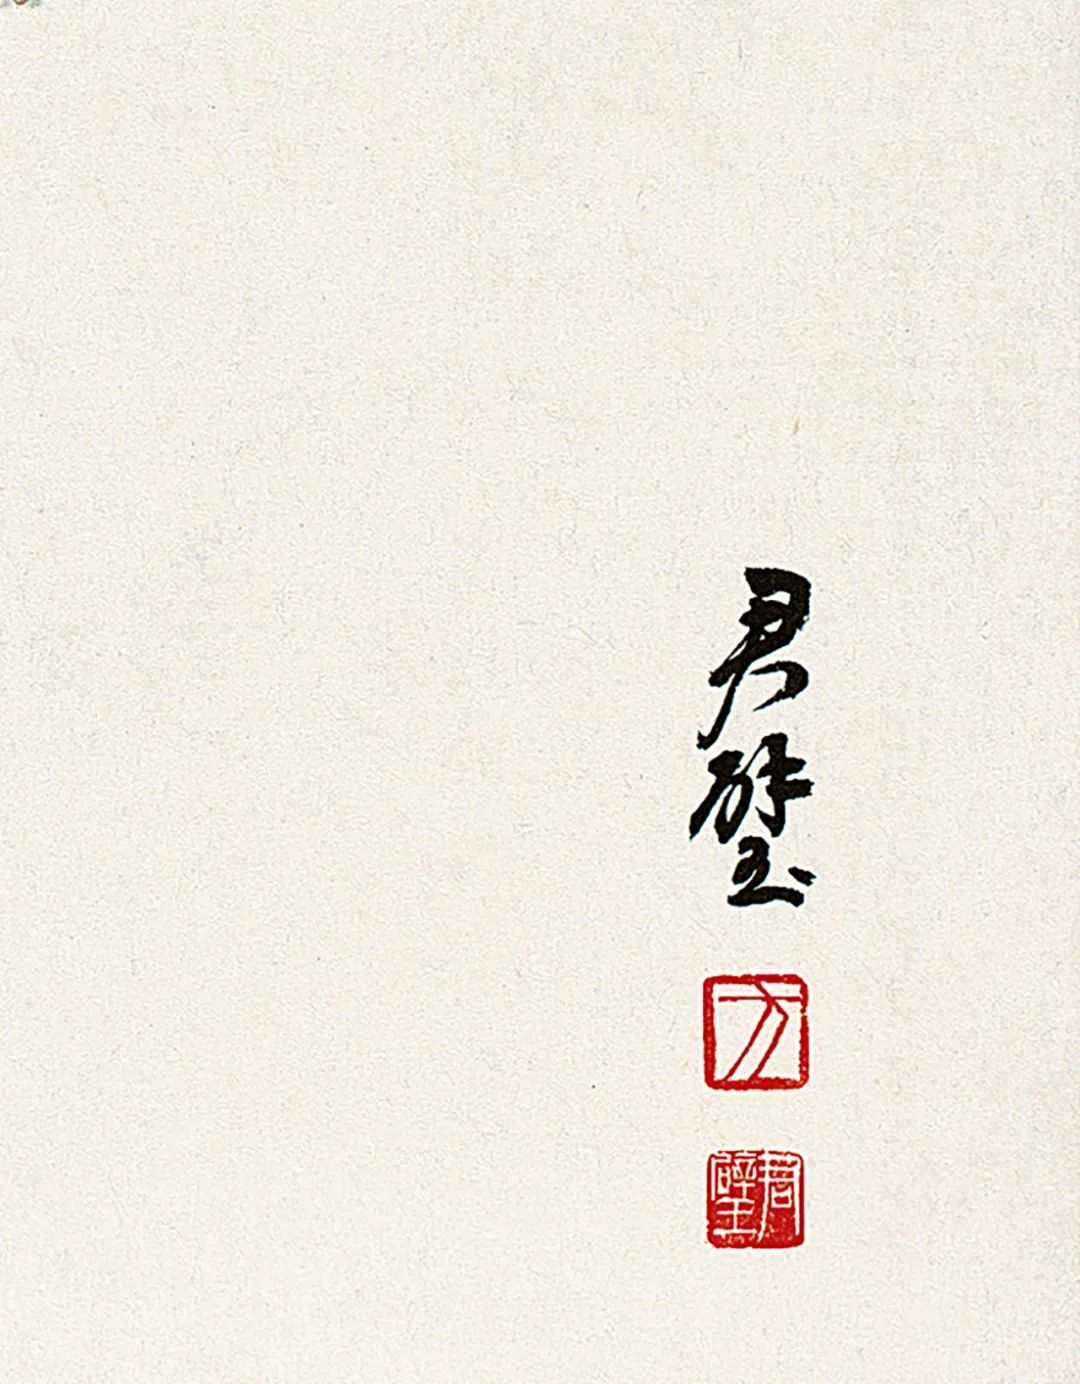 君璧
方
君璧